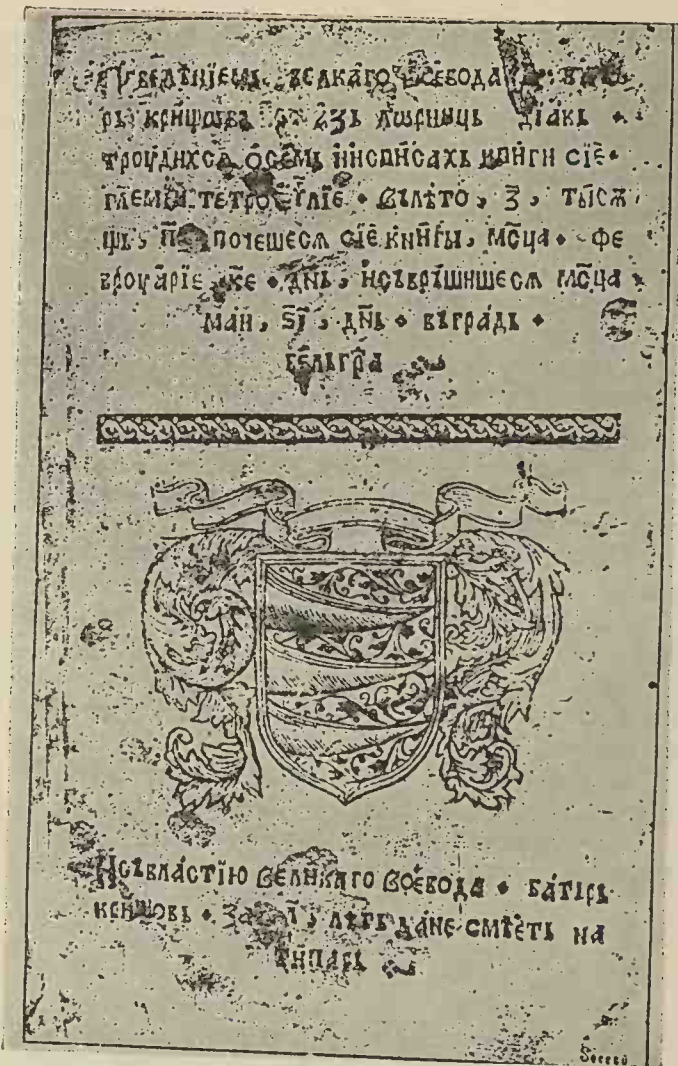 велѣнїемь велкаго воевода
крищѡвь азь лѡринць дїакь ⁘
троудихсѧ ѡ семь и исписахь книги сїе ⁘
тетроеѵⷢлїе ⁘ вьлѣто, ҂з҃, тысѫ
щь, п҃з почешесѧ сїе книгы, мⷭ҇ца ⁘ фе
вроуарїе к҃е ⁘ дн҃ь, исьврьшишесѧ мⷭ҇ца
маи, ѕ҃ї, дн҃ь ⁘ вьградь ⁘
белъгра
Исьвластїю великаго воевода ⁘ батърь
крищовь ⁘ лѣть да не смѣеть на
типарь
Socecu